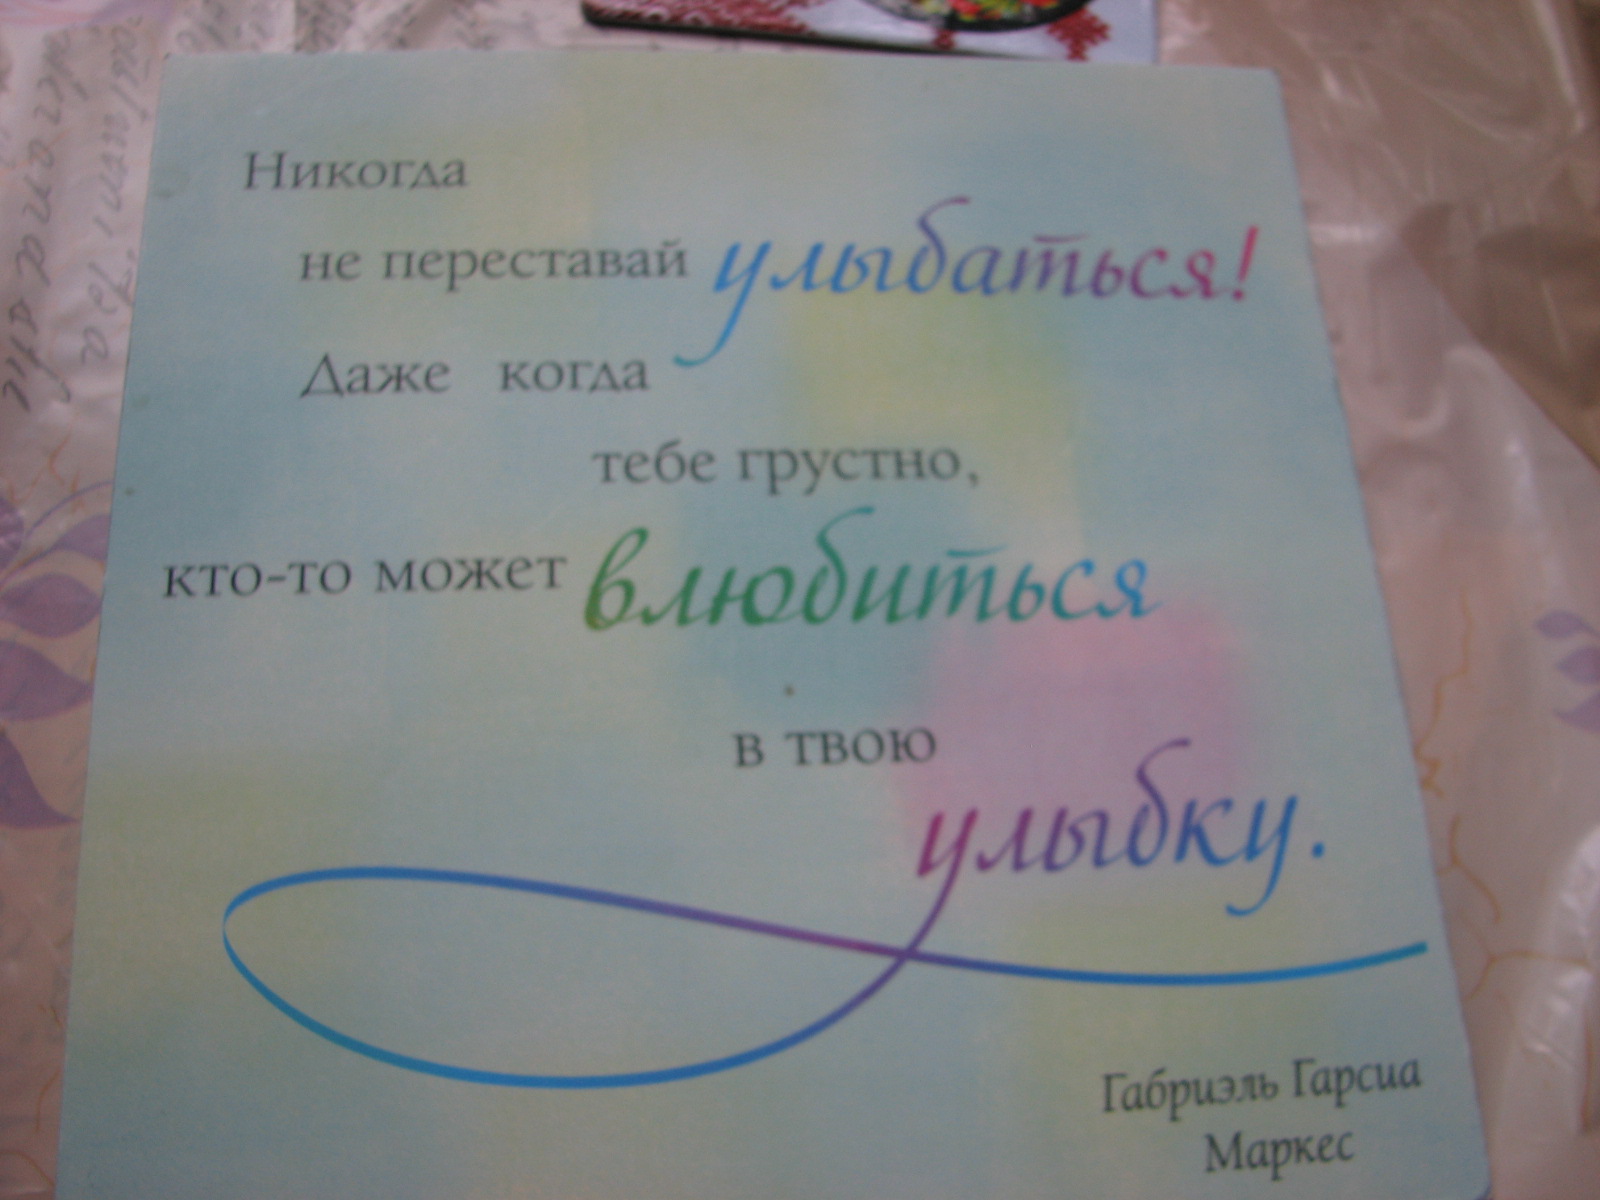 Никогда
не переставай улыбаться!
Даже когда
тебе грустно,
кто-то может влюбиться
в твою
улыбку.
Габриэль Гарсиа
Маркес